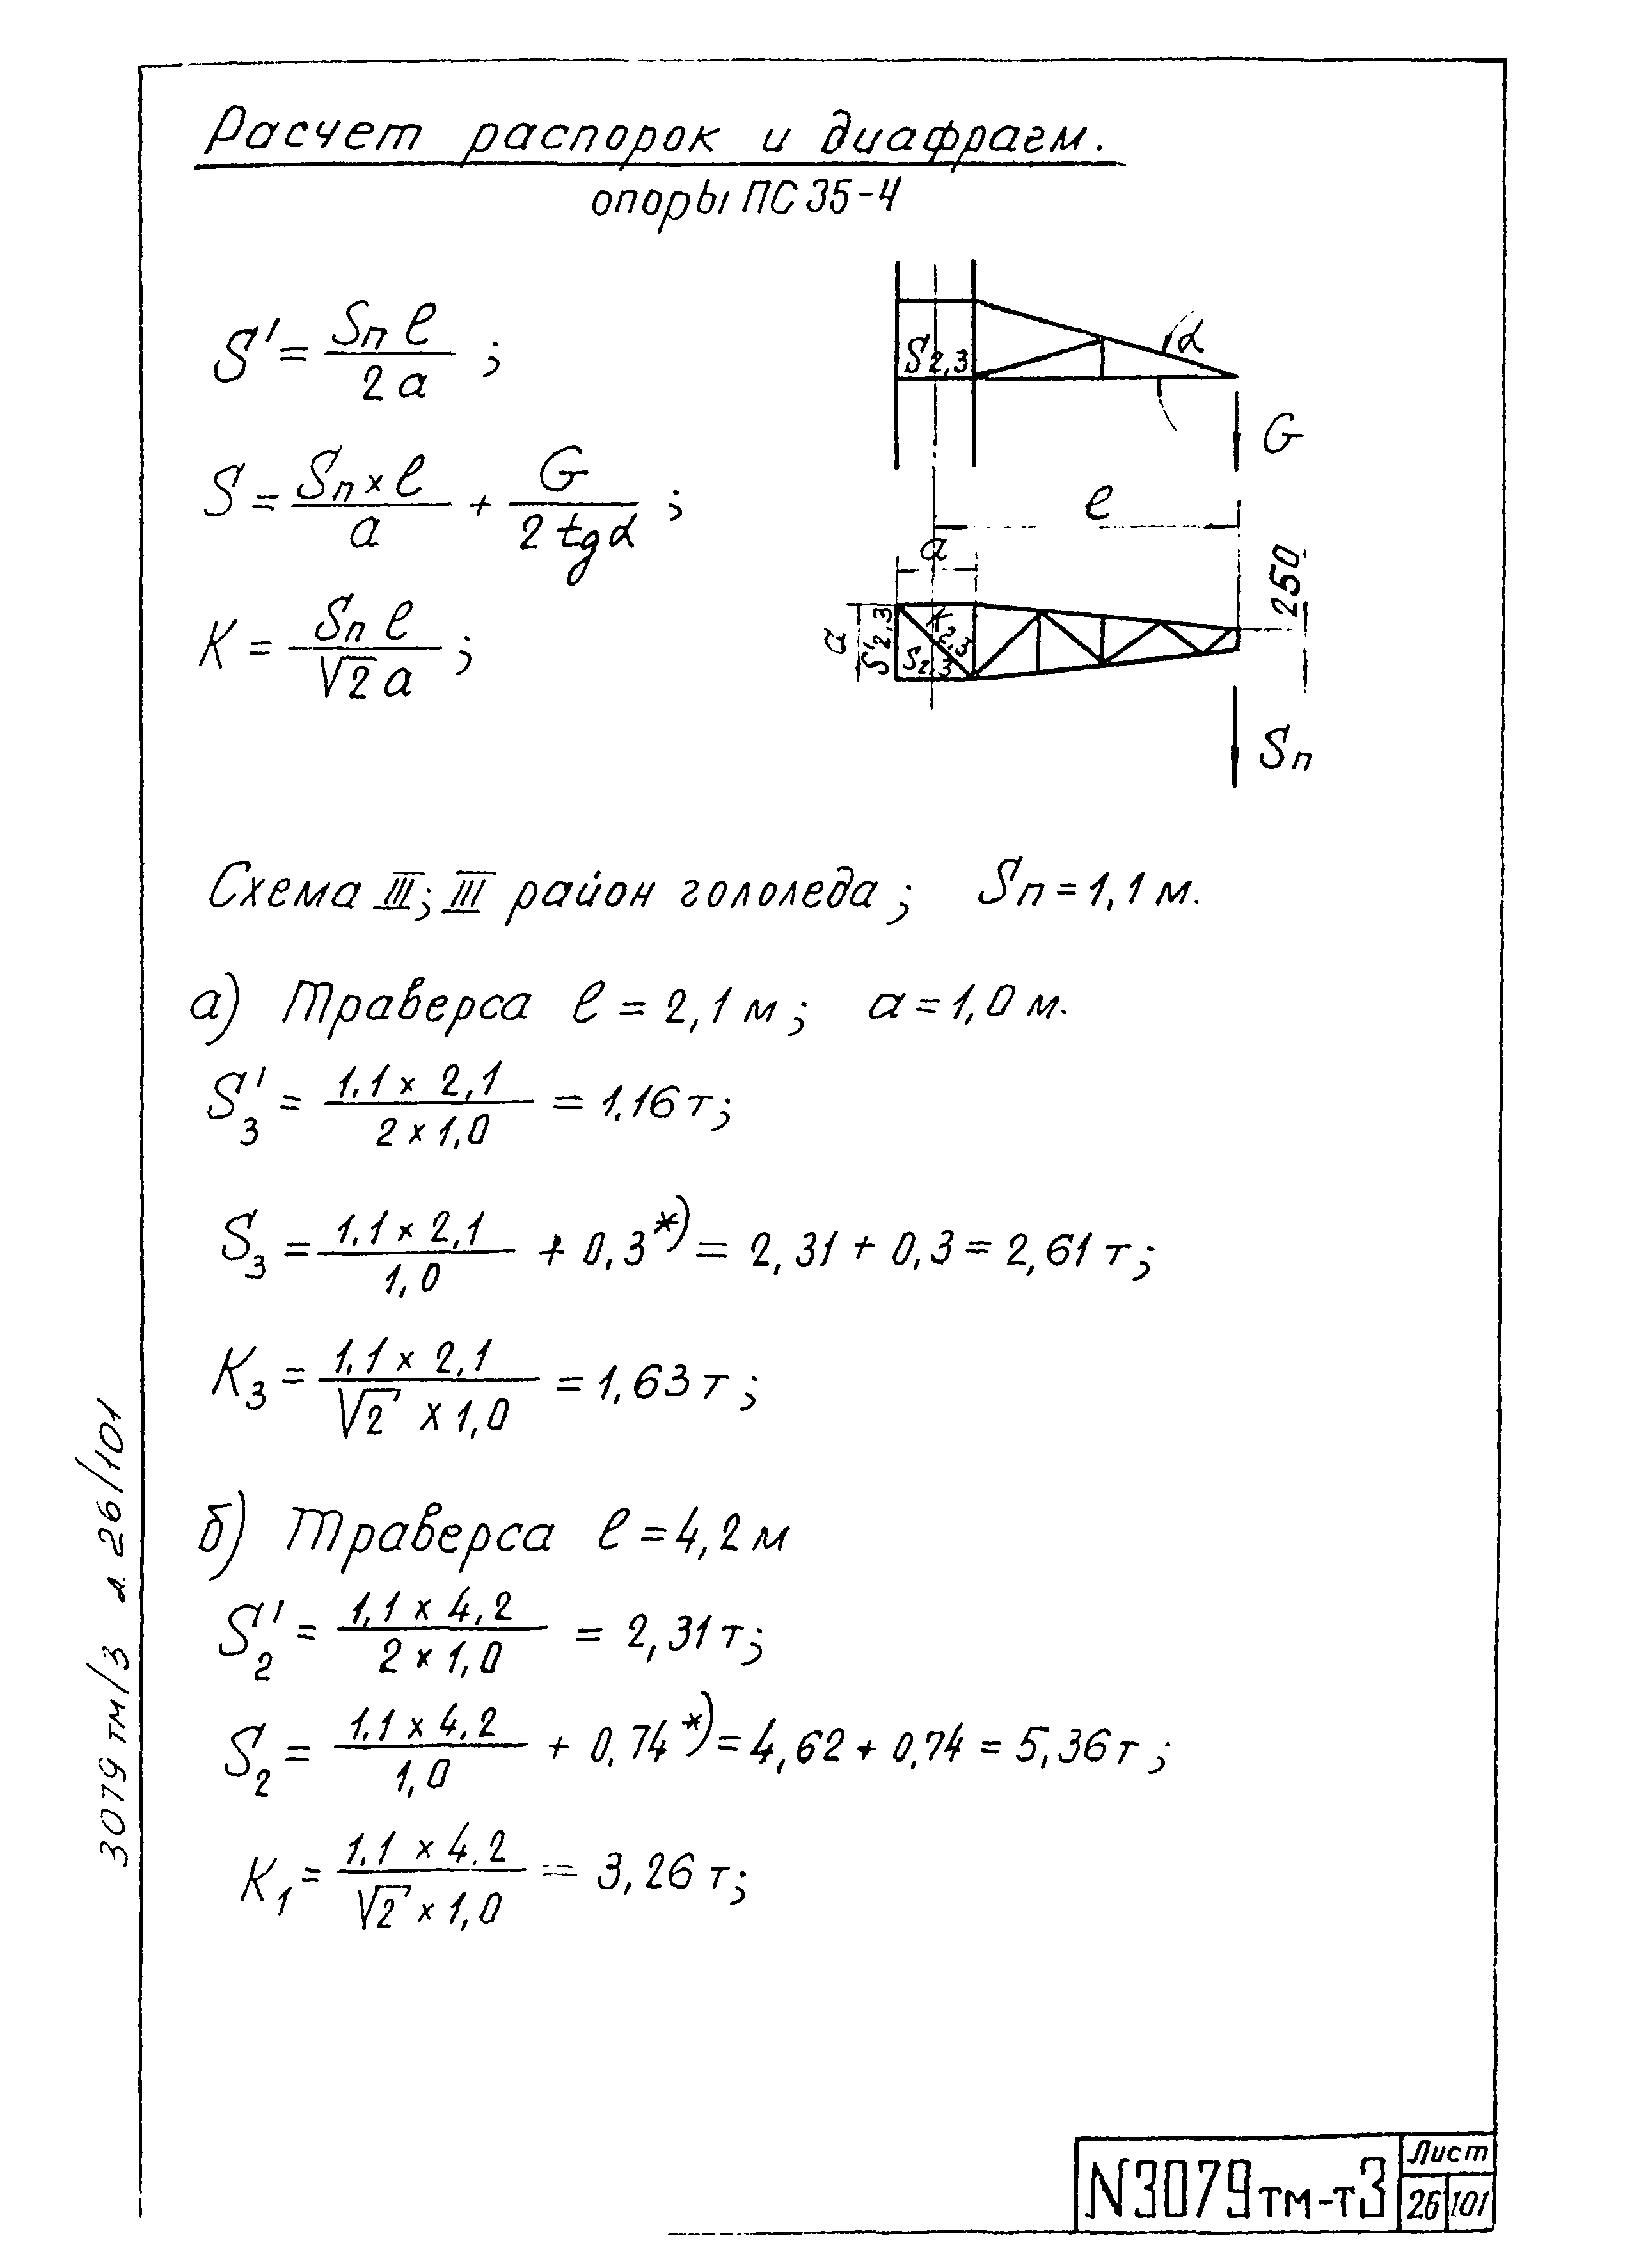 Расчет распорок и диафрагм.
опоры ПС 35-4
S' = Sп ℓ / 2 a ;
S = Sп × ℓ / a + G / 2 tg α ;
K = Sп ℓ / √2 a ;
S2,3
α
G
ℓ
a
a
S'2,3
S2,3
2,3
250
Sп
Схема III; III район гололеда; Sп = 1,1 м.
а) Траверса ℓ = 2,1 м; a = 1,0 м.
S'3 = 1,1 × 2,1 / 2 × 1,0 = 1,16 т;
S3 = 1,1 × 2,1 / 1,0 + 0,3*) = 2,31 + 0,3 = 2,61 т;
K3 = 1,1 × 2,1 / √2 × 1,0 = 1,63 т;
б) Траверса ℓ = 4,2 м
S'2 = 1,1 × 4,2 / 2 × 1,0 = 2,31 т;
S2 = 1,1 × 4,2 / 1,0 + 0,74*) = 4,62 + 0,74 = 5,36 т;
K1 = 1,1 × 4,2 / √2 × 1,0 = 3,26 т;
3079 тм/3 л. 26/101
N3079тм-т3
Лист
26 101